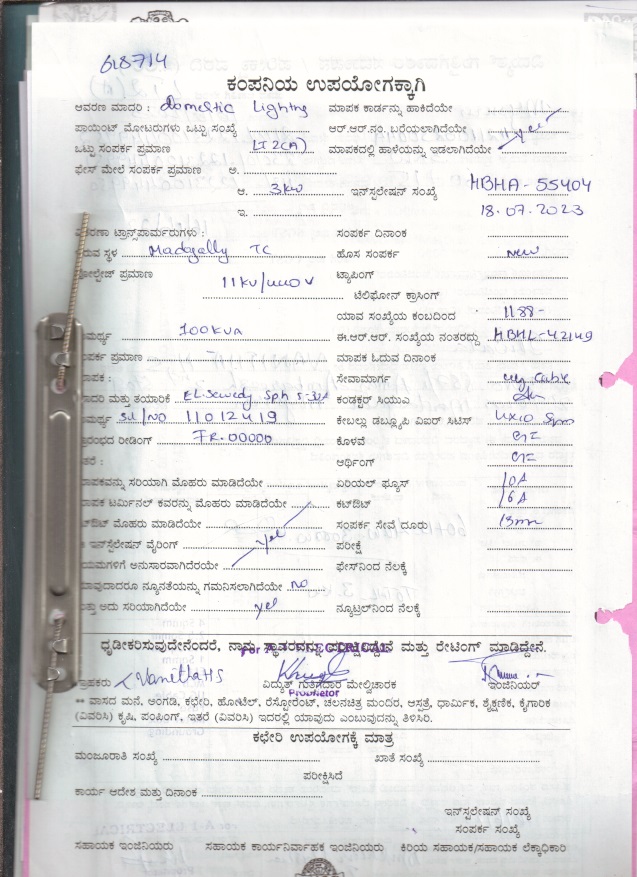 618714
ಕಂಪನಿಯ ಉಪಯೋಗಕ್ಕಾಗಿ
ಆವರಣ ಮಾದರಿ : domestic Lighting ಮಾಪಕ ಕಾರ್ಡನ್ನು ಹಾಕಿದೆಯೇ
ಪಾಯಿಂಟ್ ಮೋಟರುಗಳು ಒಟ್ಟು ಸಂಖ್ಯೆ ಆರ್.ಆರ್.ನಂ. ಬರೆಯಲಾಗಿದೆಯೇ yes
ಒಟ್ಟು ಸಂಪರ್ಕ ಪ್ರಮಾಣ LT2(A) ಮಾಪಕದಲ್ಲಿ ಹಾಳೆಯನ್ನು ಇಡಲಾಗಿದೆಯೇ
ಫೇಸ್ ಮೇಲೆ ಸಂಪರ್ಕ ಪ್ರಮಾಣ ಅ.
ಆ. 3kw ಇನ್‌ಸ್ಟಲೇಷನ್ ಸಂಖ್ಯೆ HBHA-55404
ಇ. 18.07.2023
ಟ್ರಾನ್ಸ್‌ಪಾರ್ಮರುಗಳು : ಸಂಪರ್ಕ ದಿನಾಂಕ
ರುವ ಸ್ಥಳ Madgally TC ಹೊಸ ಸಂಪರ್ಕ new
ಪ್ರಮಾಣ 11kv/ ಟ್ಯಾಪಿಂಗ್
ಟೆಲಿಫೋನ್ ಕ್ರಾಸಿಂಗ್
ಯಾವ ಸಂಖ್ಯೆಯ ಕಂಬದಿಂದ 1188-
100kva ಈ.ಆರ್.ಆರ್. ಸಂಖ್ಯೆಯ ನಂತರದ್ದು HBHL-42149
ಪರ್ಕ ಪ್ರಮಾಣ ಮಾಪಕ ಓದುವ ದಿನಾಂಕ
ಪಕ : ಸೇವಾಮಾರ್ಗ ug Cable
ಾದರಿ ಮತ್ತು ತಯಾರಿಕೆ EL.Sewedy Sph 5-30A ಕಂಡಕ್ಟರ್ ಸಿಯುಎ
ಮರ್ಥ್ಯ Sl/NO 11012419 ಕೇಬಲ್ಲು ಡಬ್ಲ್ಯೂಪಿ ವಿಐರ್ ಸಿಟಿಸ್
ರಂಭದ ರೀಡಿಂಗ್ FR.00000 ಕೊಳವೆ
ತರೆ : ಆರ್ಥಿಂಗ್
ಾಪಕವನ್ನು ಸರಿಯಾಗಿ ಮೊಹರು ಮಾಡಿದೆಯೇ ಏರಿಯಲ್ ಫ್ಯೂಸ್ 10A
ಾಪಕ ಟರ್ಮಿನಲ್ ಕವರನ್ನು ಮೊಹರು ಮಾಡಿದೆಯೇ ಕಟ್‌ಔಟ್ 16A
ಟ್‌ಔಟ್ ಮೊಹರು ಮಾಡಿದೆಯೇ ಸಂಪರ್ಕ ಸೇವೆ ದೂರು 13mr
ಇನ್‌ಸ್ಟಲೇಷನ್ ವೈರಿಂಗ್ yes ಪರೀಕ್ಷೆ
ಯಮಗಳಿಗೆ ಅನುಸಾರವಾಗಿದೆರಯೇ ಫೇಸ್‌ನಿಂದ ನೆಲಕ್ಕೆ
ಾವುದಾದರೂ ನ್ಯೂನತೆಯನ್ನು ಗಮನಿಸಲಾಗಿದೆಯೇ no
ತ್ತು ಅದು ಸರಿಯಾಗಿದೆಯೇ yes ನ್ಯೂಟ್ರಲ್‌ನಿಂದ ನೆಲಕ್ಕೆ
ಧೃಡೀಕರಿಸುವುದೇನೆಂದರೆ, ನಾನು ಸ್ಥಾವರವನ್ನು ಪರೀಕ್ಷಿಸಿದ್ದೇನೆ ಮತ್ತು ರೇಟಿಂಗ್ ಮಾಡಿದ್ದೇನೆ.
ಗ್ರಾಹಕರು Vanitha HS ವಿದ್ಯುತ್ ಗುತ್ತಿಗೆದಾರ ಮೇಲ್ವಿಚಾರಕ ಇಂಜಿನಿಯರ್
Proprietor
** ವಾಸದ ಮನೆ, ಅಂಗಡಿ, ಕಛೇರಿ, ಹೋಟೆಲ್, ರೆಸ್ಟೋರೆಂಟ್, ಚಲನಚಿತ್ರ ಮಂದಿರ, ಆಸ್ಪತ್ರೆ, ಧಾರ್ಮಿಕ, ಶೈಕ್ಷಣಿಕ, ಕೈಗಾರಿಕ
(ವಿವರಿಸಿ) ಕೃಷಿ, ಪಂಪಿಂಗ್, ಇತರೆ (ವಿವರಿಸಿ) ಇದರಲ್ಲಿ ಯಾವುದು ಎಂಬುವುದನ್ನು ತಿಳಿಸಿರಿ.
ಕಛೇರಿ ಉಪಯೋಗಕ್ಕೆ ಮಾತ್ರ
ಮಂಜೂರಾತಿ ಸಂಖ್ಯೆ ಖಾತೆ ಸಂಖ್ಯೆ
ಪರೀಕ್ಷಿಸಿದೆ
ಕಾರ್ಯ ಆದೇಶ ಮತ್ತು ದಿನಾಂಕ
ಇನ್‌ಸ್ಟಲೇಷನ್ ಸಂಖ್ಯೆ
ಸಂಪರ್ಕ ಸಂಖ್ಯೆ
ಸಹಾಯಕ ಇಂಜಿನಿಯರು ಸಹಾಯಕ ಕಾರ್ಯನಿರ್ವಾಹಕ ಇಂಜಿನಿಯರು ಕಿರಿಯ ಸಹಾಯಕ/ಸಹಾಯಕ ಲೆಕ್ಕಾಧಿಕಾರಿ